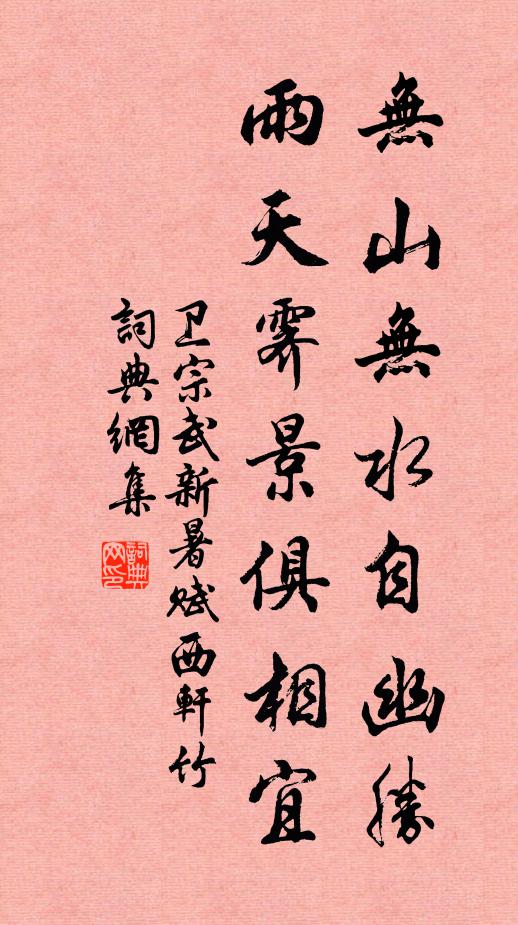 無山無水自幽勝
雨天霽景俱相宜
卫宗武新暑赋西軒竹
詞典網集
詞典网印